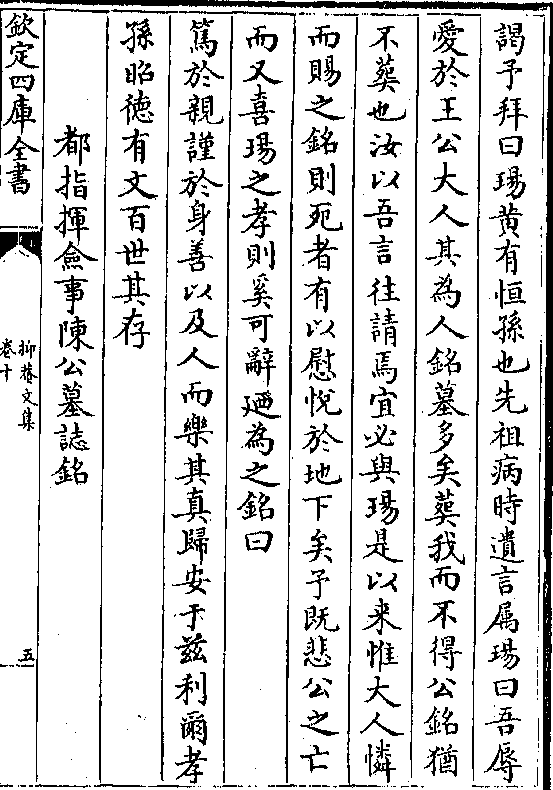 謁予拜曰瑒黄有恒孫也先祖病時遺言屬瑒曰吾辱
愛於王公大人其為人銘墓多矣葬我而不得公銘猶
不葬也汝以吾言往請焉宜必與瑒是以来惟大人憐
而賜之銘則死者有以慰悦於地下矣予既悲公之亡
而又喜瑒之孝則奚可辭廼為之銘曰
篤於親謹於身善以及人而樂其真歸安于兹利爾孝
孫昭徳有文百世其存
都指揮僉事陳公墓誌銘
欽定四庫全書
抑菴文集
卷十
五